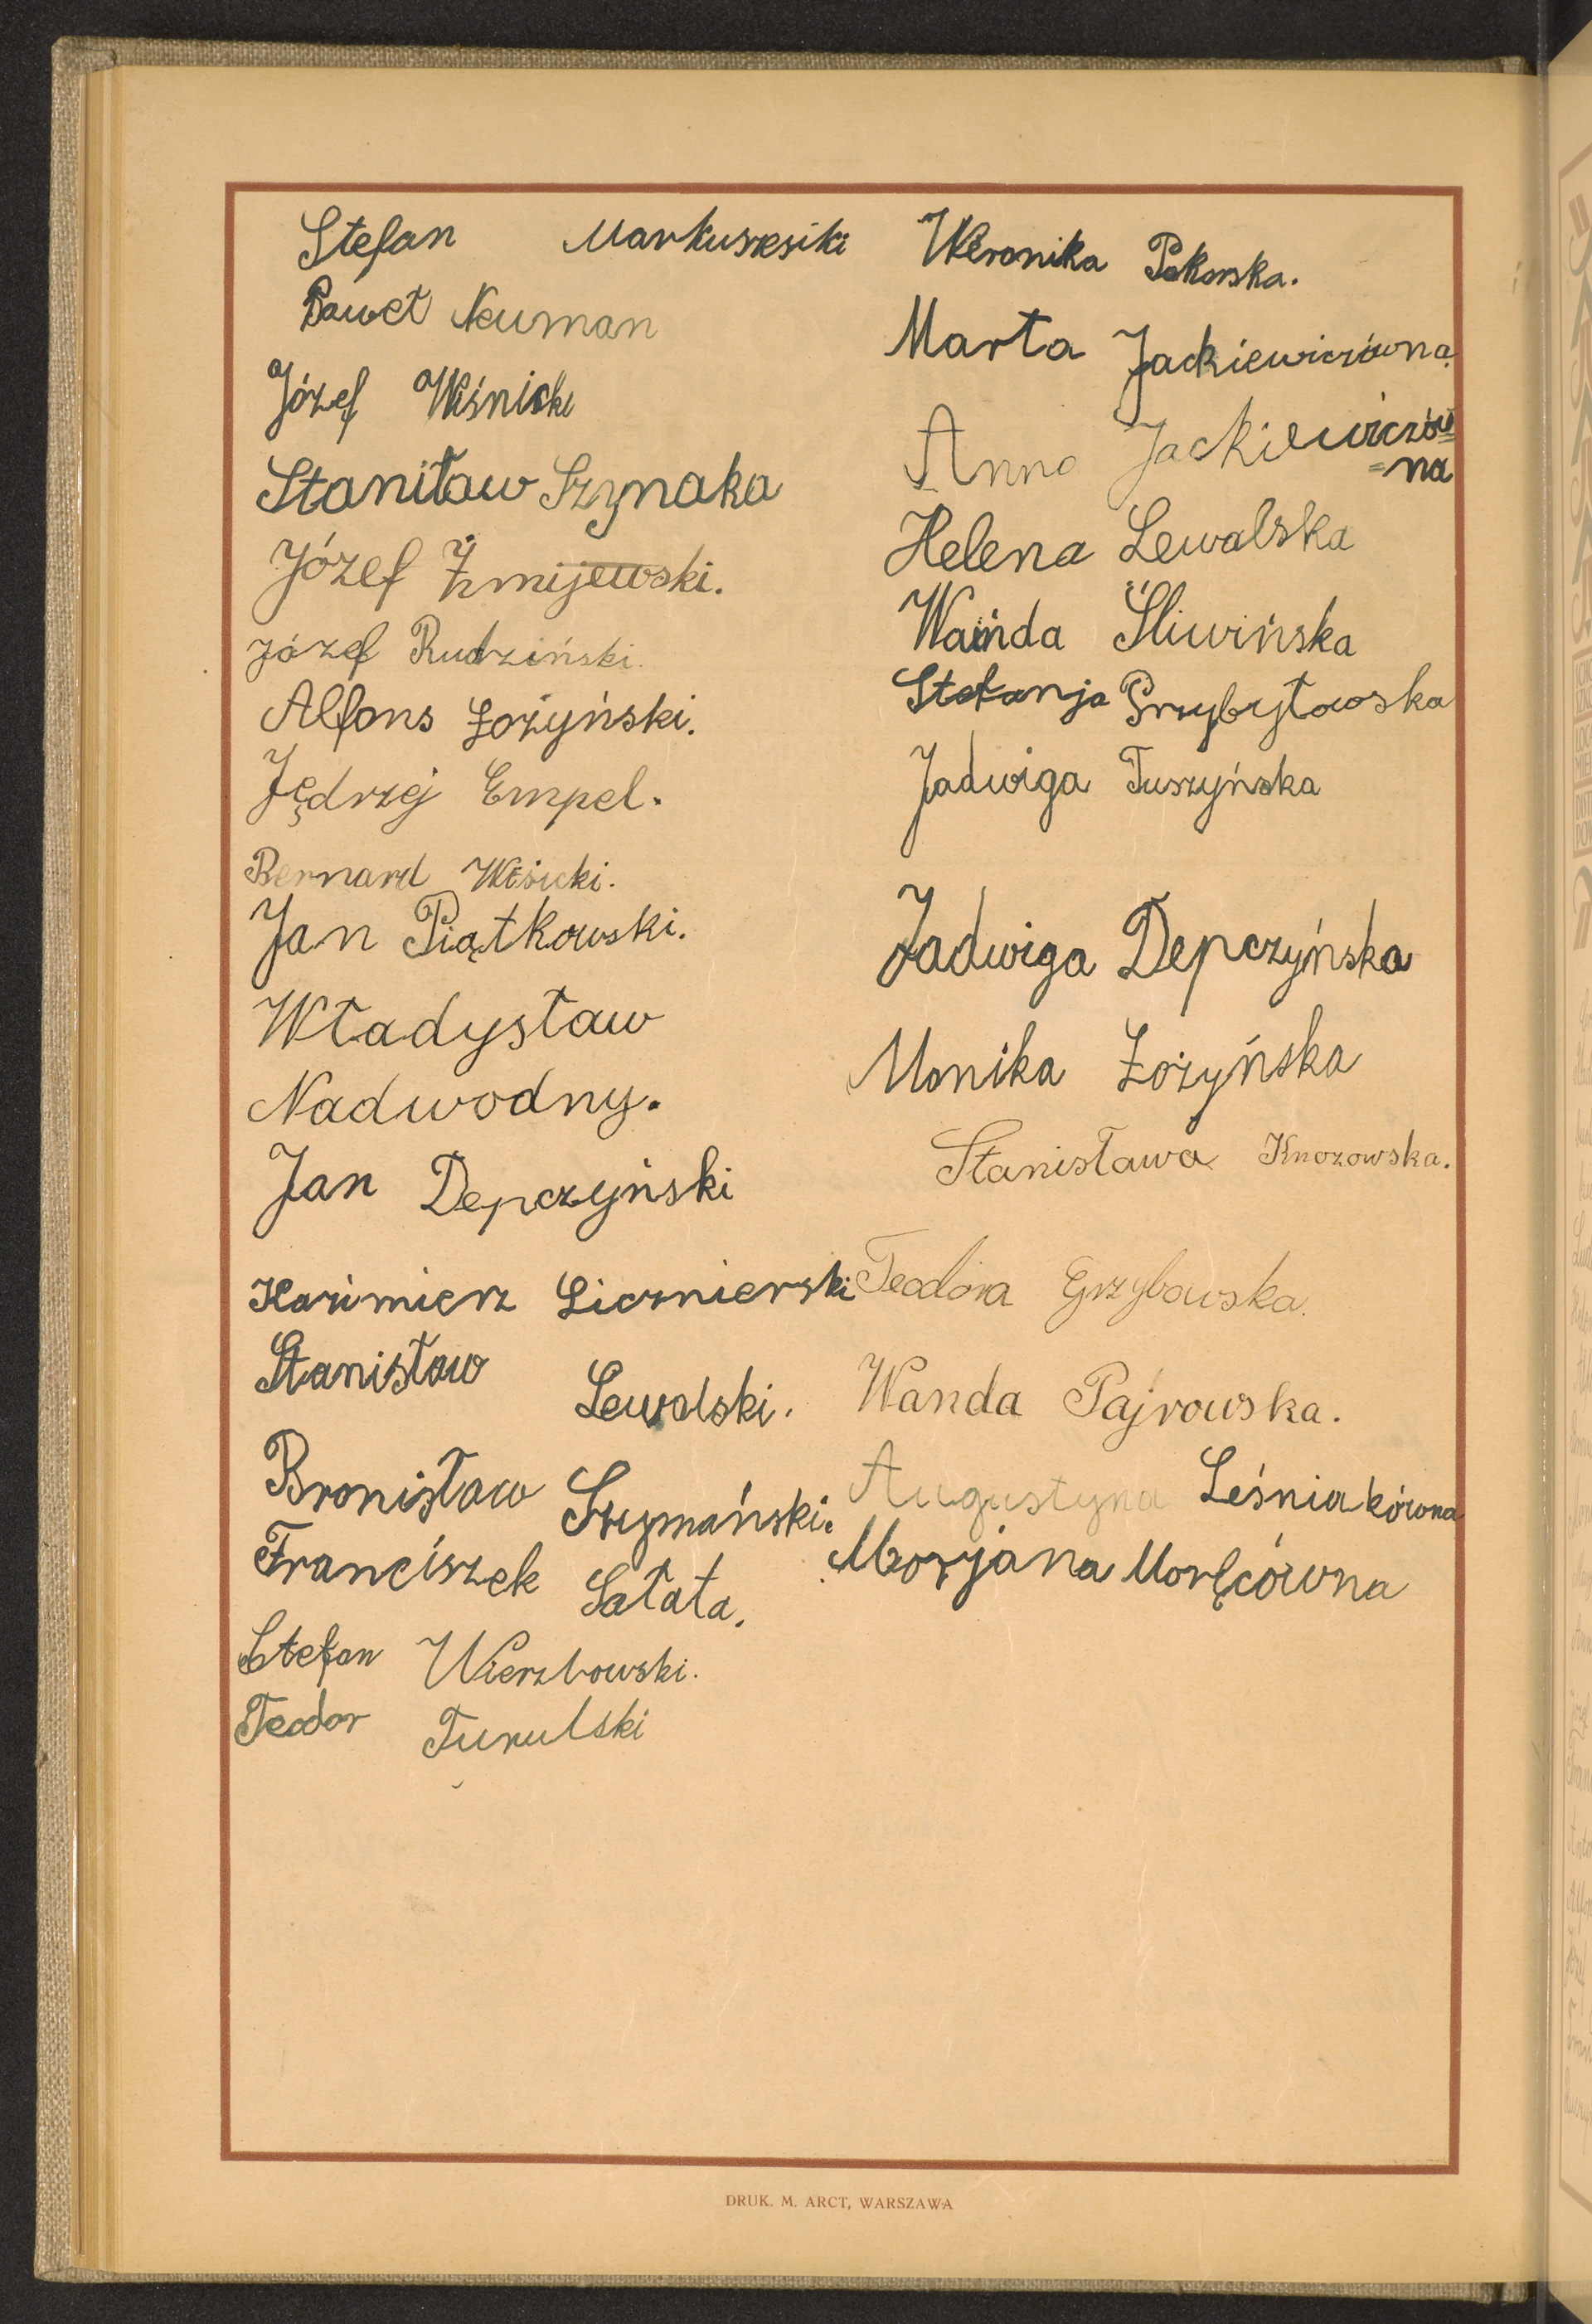 Stefan Markuszesiki
Paweł Neuman
Józef Wiśnicki
Stanitaw Szynaka
Józef Żmijewski.
Józef Rudziński.
Alfons Łożyński.
Jędrzej Empel.
Bernard
Jan Piątkowski.
Władysław
Nadwodny.
Jan Depczyński
Kazimierz Licznierski
Stanisław Lewalski.
Bronisław Szymański.
Franciszek Sałata.
Stefan Wierzbowski.
Teodor Turulski
Weronika Pokorska.
Marta Jackiewiczówna.
Anna Jackiewiczów=
=na
Helena Lewalska
Wanda Śliwińska
Stefanja Przybytowska
Jadwiga Tuszyńska
Jadwiga Depczyńska
Monika Łożyńska
Stanisława Knozowska.
Teodora Grzybowska.
Wanda Pajrowska.
Augustyna Leśniakówna
Marjana Moręcówna
DRUK. M. ARCT, WARSZAWA